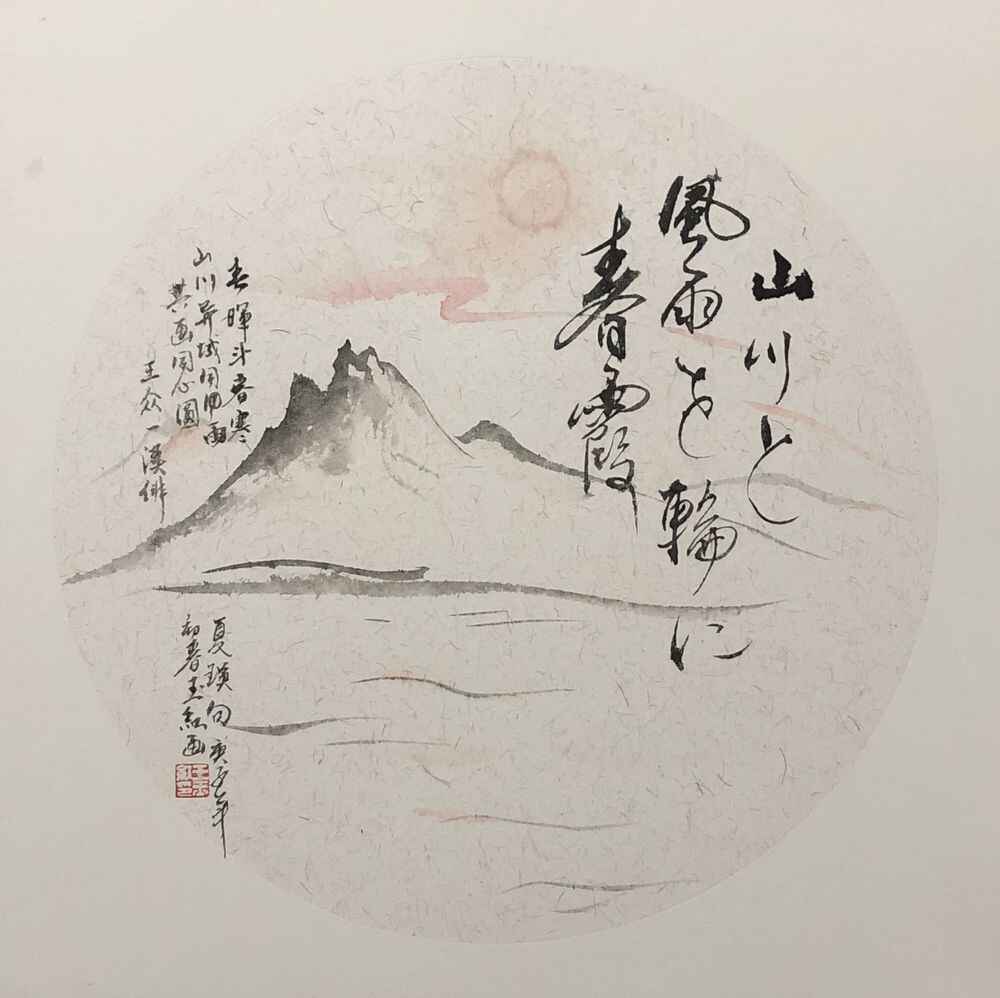 山川と
風雨を輪に
春霞
春暉斗春寒
山川异域同风雨
共画同心圆
王众一漢俳
夏瑛句 庚子年
初春玉红画